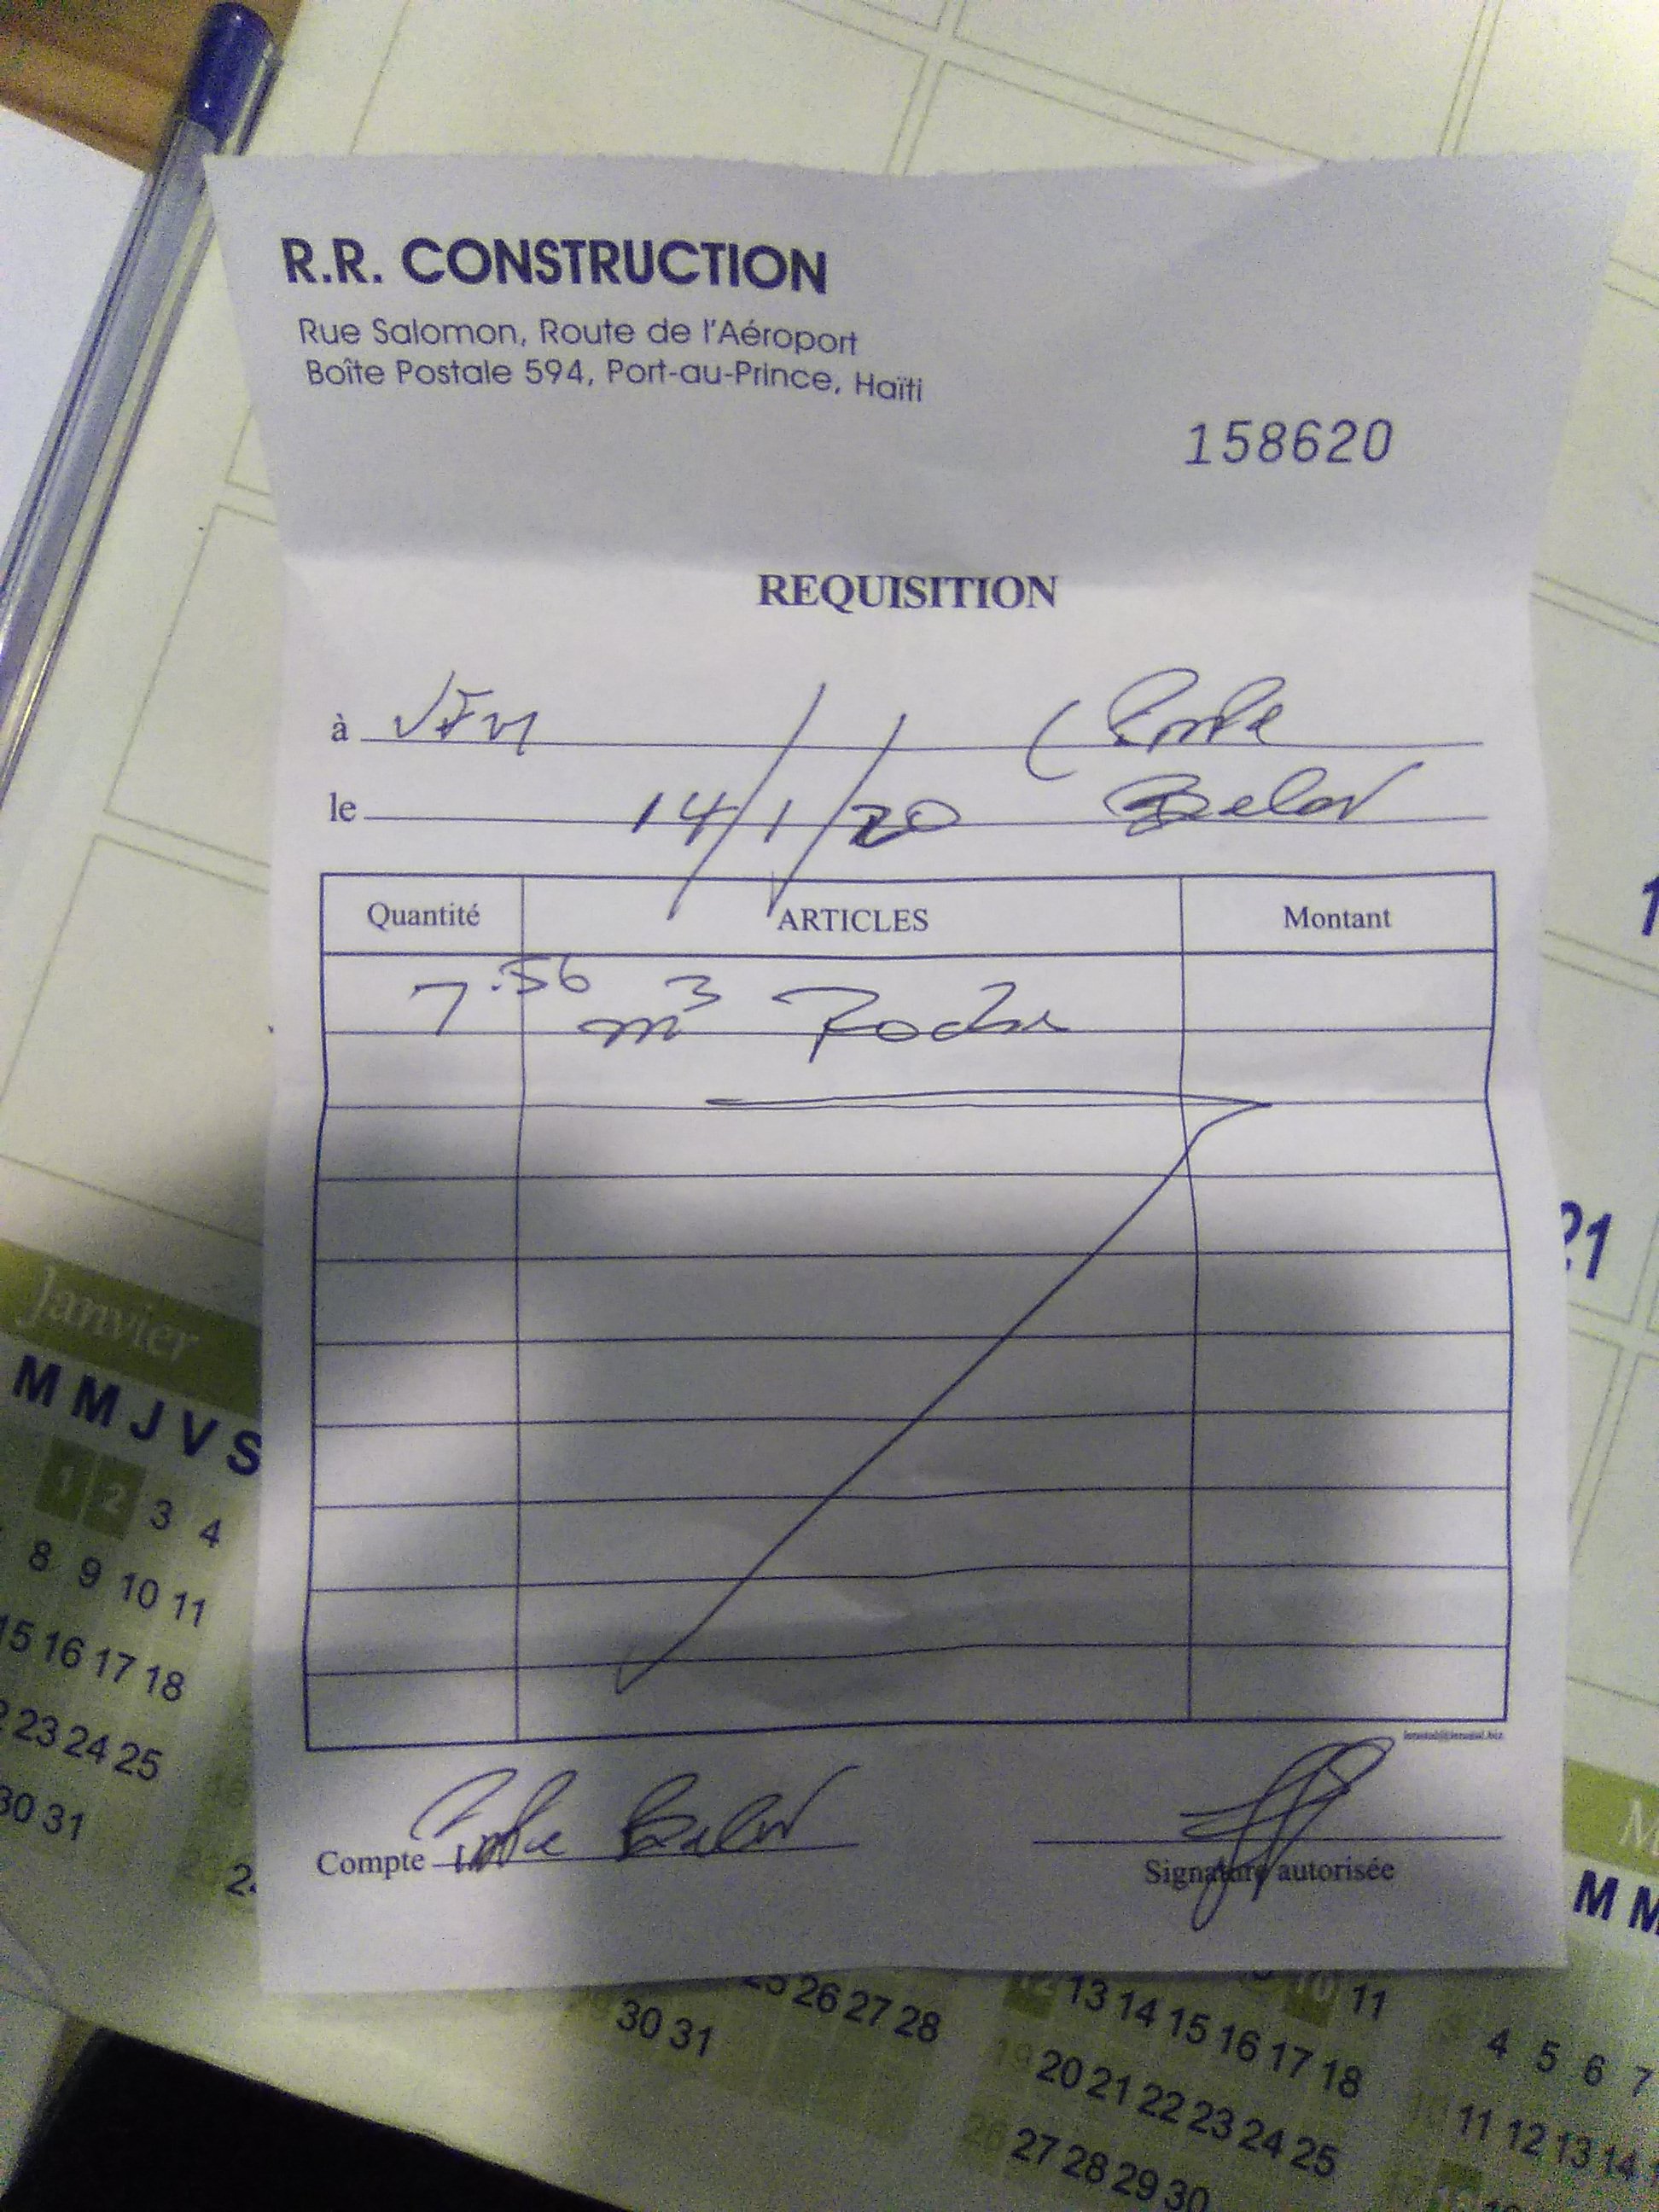 R.R. CONSTRUCTION
Rue Salomon, Route de l'Aéroport
Boîte Postale 594, Port-au-Prince, Haïti
158620
REQUISITION
à
le 14/1/20 Belov
Quantité ARTICLES Montant
7.56 m³ Roche
Compte
Signature autorisée
Janvier
M M J V S
1 2 3 4
8 9 10 11
15 16 17 18
23 24 25
30 31
21
M M
25 26 27 28
30 31
12 13 14 15 16 17 18
19 20 21 22 23 24 25
26 27 28 29 30
10 11
4 5 6 7
11 12 13 14